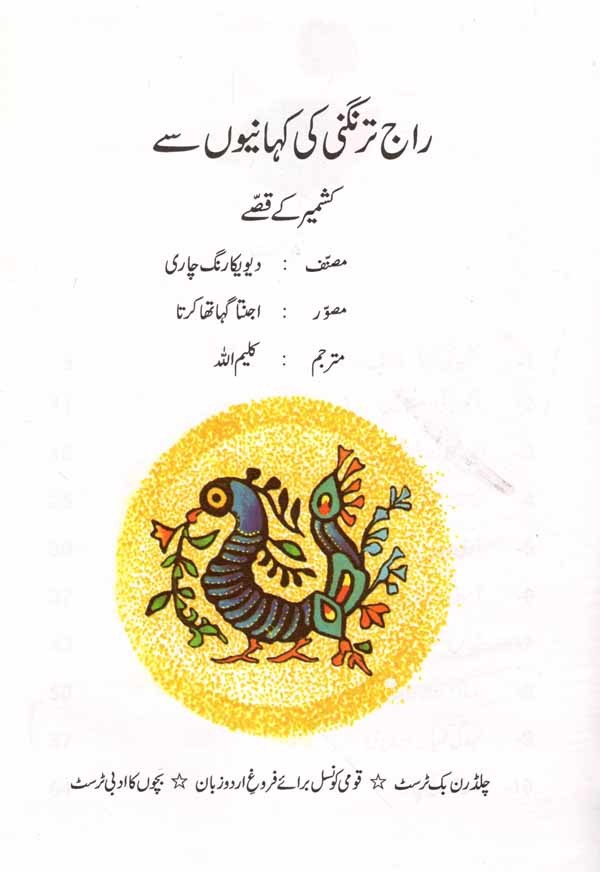 راج ترنگنی کی کہانیوں سے
کشمیر کے قصّے
مصنّف : دیویکا رنگ چاری
مصوّر : اجنتا گہا تھاکرتا
مترجم : کلیم اللہ
چلڈرن بک ٹرسٹ ☆ قومی کونسل برائے فروغِ اردو زبان ☆ بچّوں کا ادبی ٹرسٹ